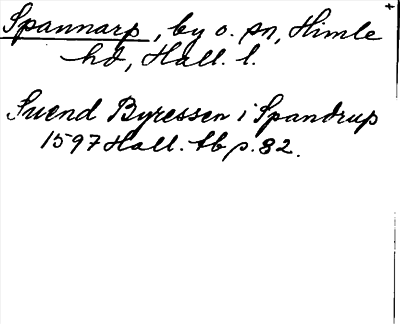 Spannarp, by o. sn, Himle
hd, Hall. l.
Suend Byressen i Spandrup
1597 Hall. tb p. 82.